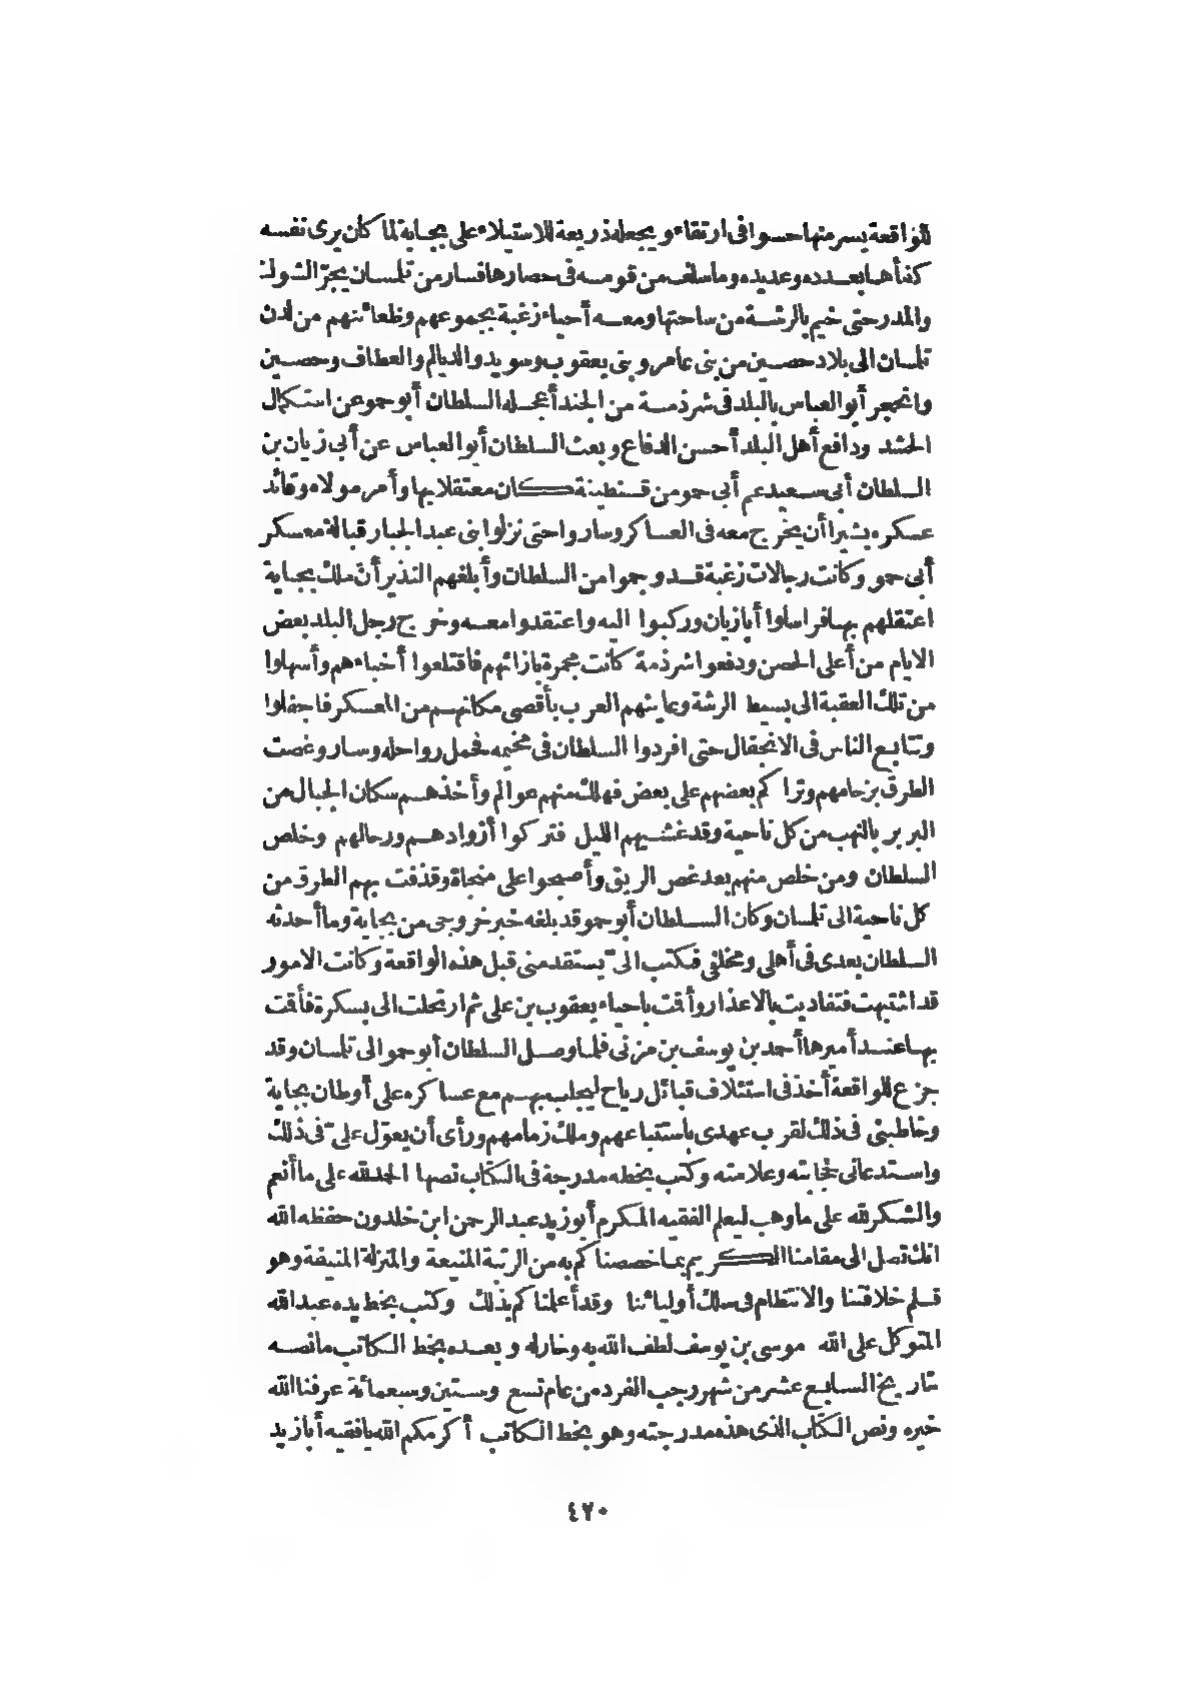 للواقعة يسر منها حسوا فى ارتقاء ويجعله ذريعة للاستيلاء على بجاية لما كان يرى نفسه
كفأ لها بعدده وعديده وما سلف من قومه فى حصارها فسار من تلمسان يجرّ الشوك
والمدر حتى خيم بالرشة من ساحتها ومعه أحياء زغبة بجموعهم وظعائنهم من لدن
تلمسان الى بلاد حصين من بنى عامر وبنى يعقوب وسويد والديالم والعطاف وحصين
وانحجر أبو العباس بالبلد فى شرذمة من الجند أعجله السلطان أبو حمو عن استكمال
الحشد ودافع أهل البلد أحسن الدفاع وبعث السلطان أبو العباس عن أبى زيان بن
السلطان أبى سعيد عم أبى حمو من قسنطينة كان معتقلا بها وأمر مولاه وقائد
عسكره بشيرا أن يخرج معه فى العساكر وساروا حتى نزلوا بنى عبد الجبار قبالة معسكر
أبى حمو وكانت رجالات زغبة قد وجموا من السلطان وأبلغهم النذير أن ملك بجاية
اعتقلهم بها فراسلوا أبا زيان وركبوا اليه واعتقدوا معه وخرج رجل البلد بعض
الايام من أعلى الحصن ودفعوا شرذمة كانت مجمرة بازائهم فاقتلعوا أخباءهم وأسهلوا
من تلك العقبة الى بسيط الرشة وعاينهم العرب بأقصى مكانهم من المعسكر فاجفلوا
وتتابع الناس فى الانجفال حتى افردوا السلطان فى مخيمه فحمل رواحله وسار وغصت
الطرق بزحامهم وتراكم بعضهم على بعض فهلك منهم عوالم وأخذهم سكان الجبال من
البربر بالنهب من كل ناحية وقد غشيهم الليل فتركوا أزوادهم ورحالهم وخلص
السلطان ومن خلص منهم بعد غص الريق وأصبحوا على منجاة وقذفت بهم الطرق من
كل ناحية الى تلمسان وكان السلطان أبو حمو قد بلغه خبر خروجى من بجاية وما أحدثه
السلطان بعدى فى أهلى ومخلفى فكتب الىّ يستقدمنى قبل هذه الواقعة وكانت الامور
قد اشتبهت فتفاديت بالاعذار وأقمت باحياء يعقوب بن على ثم ارتحلت الى بسكرة فأقمت
بها عند أميرها أحمد بن يوسف بن مزنى فلما وصل السلطان أبو حمو الى تلمسان وقد
جزع للواقعة أخذ فى استئلاف قبائل رياح ليجلب بهم مع عساكره على أوطان بجاية
وخاطبنى فى ذلك لقرب عهدى باستتباعهم وملك زمامهم ورأى أن يعوّل علىّ فى ذلك
واستدعانى لحجابته وعلامته وكتب بخطه مدرجة فى الكتاب نصها الحمد لله على ما أنعم
والشكر لله على ما وهب ليعلم الفقيه المكرم أبو زيد عبد الرحمن ابن خلدون حفظه الله
انك تصل الى مقامنا الكريم بما خصصناكم به من الرتبة المنيعة والمنزلة المنيفة وهو
قلم خلافتنا والانتظام فى سلك أوليائنا وقد أعلمناكم بذلك وكتب بخط يده عبد الله
المتوكل على الله موسى بن يوسف لطف الله به وخار له وبعده بخط الكاتب ما نصه
بتاريخ السابع عشر من شهر رجب الفرد من عام تسع وستين وسبعمائة عرفنا الله
خيره ونص الكتاب الذى هذه مدرجته وهو بخط الكاتب أكرمكم الله يا فقيه أبا زيد
٤٢٠